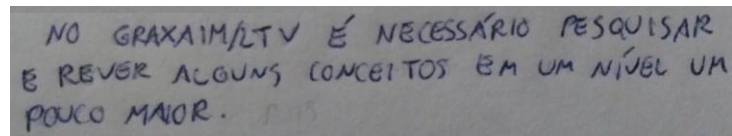 NO GRAXAIM/LTV É NECESSÁRIO PESQUISAR
E REVER ALGUNS CONCEITOS EM UM NÍVEL UM
POUCO MAIOR.